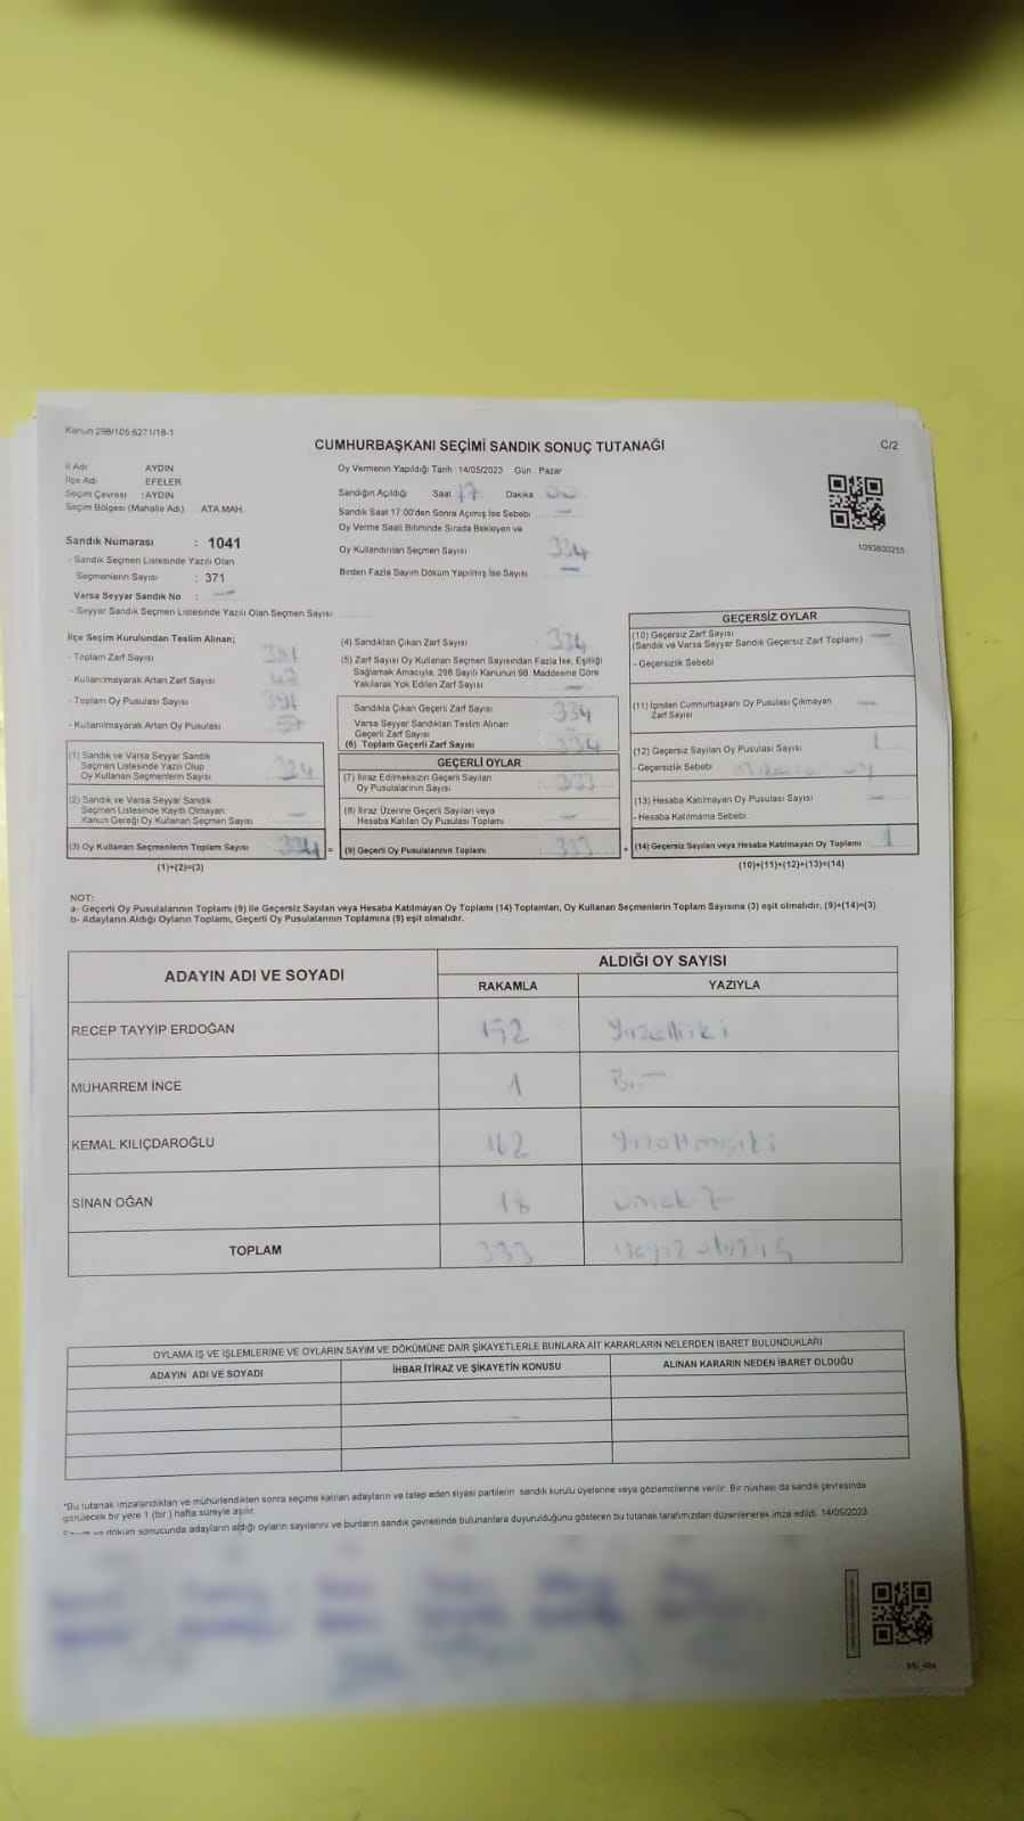 Kanun 298/105-6271/18-1
CUMHURBAŞKANI SEÇİMİ SANDIK SONUÇ TUTANAĞI
C/2
İl Adı AYDIN
İlçe Adı EFELER
Seçim Çevresi : AYDIN
Seçim Bölgesi (Mahalle Adı) ATA MAH.
Sandık Numarası : 1041
- Sandık Seçmen Listesinde Yazılı Olan
Seçmenlerin Sayısı : 371
Varsa Seyyar Sandık No : —
- Seyyar Sandık Seçmen Listesinde Yazılı Olan Seçmen Sayısı
Oy Vermenin Yapıldığı Tarih : 14/05/2023 Gün : Pazar
Sandığın Açıldığı Saat 17 Dakika 00
Sandık Saat 17:00'den Sonra Açılmış İse Sebebi —
Oy Verme Saati Bitiminde Sırada Bekleyen ve
Oy Kullandırılan Seçmen Sayısı 334
Birden Fazla Sayım Döküm Yapılmış İse Sayısı —
1093800255
İlçe Seçim Kurulundan Teslim Alınan;
- Toplam Zarf Sayısı
- Kullanılmayarak Artan Zarf Sayısı
- Toplam Oy Pusulası Sayısı
- Kullanılmayarak Artan Oy Pusulası
(1) Sandık ve Varsa Seyyar Sandık
Seçmen Listesinde Yazılı Olup
Oy Kullanan Seçmenlerin Sayısı
(2) Sandık ve Varsa Seyyar Sandık
Seçmen Listesinde Kayıtlı Olmayan,
Kanun Gereği Oy Kullanan Seçmen Sayısı —
(3) Oy Kullanan Seçmenlerin Toplam Sayısı 334 =
(1)+(2)=(3)
(4) Sandıktan Çıkan Zarf Sayısı 334
(5) Zarf Sayısı Oy Kullanan Seçmen Sayısından Fazla İse, Eşitliği
Sağlamak Amacıyla, 298 Sayılı Kanunun 98. Maddesine Göre
Yakılarak Yok Edilen Zarf Sayısı —
Sandıkta Çıkan Geçerli Zarf Sayısı 334
Varsa Seyyar Sandıktan Teslim Alınan
Geçerli Zarf Sayısı —
(6) Toplam Geçerli Zarf Sayısı 334
GEÇERLİ OYLAR
(7) İtiraz Edilmeksizin Geçerli Sayılan
Oy Pusulalarının Sayısı 333
(8) İtiraz Üzerine Geçerli Sayılan veya
Hesaba Katılan Oy Pusulası Toplamı —
(9) Geçerli Oy Pusulalarının Toplamı 333 +
GEÇERSİZ OYLAR
(10) Geçersiz Zarf Sayısı —
(Sandık ve Varsa Seyyar Sandık Geçersiz Zarf Toplamı)
- Geçersizlik Sebebi
(11) İçinden Cumhurbaşkanı Oy Pusulası Çıkmayan
Zarf Sayısı —
(12) Geçersiz Sayılan Oy Pusulası Sayısı 1
- Geçersizlik Sebebi
(13) Hesaba Katılmayan Oy Pusulası Sayısı —
- Hesaba Katılmama Sebebi
(14) Geçersiz Sayılan veya Hesaba Katılmayan Oy Toplamı 1
(10)+(11)+(12)+(13)=(14)
NOT:
a- Geçerli Oy Pusulalarının Toplamı (9) ile Geçersiz Sayılan veya Hesaba Katılmayan Oy Toplamı (14) Toplamları, Oy Kullanan Seçmenlerin Toplam Sayısına (3) eşit olmalıdır, (9)+(14)=(3)
b- Adayların Aldığı Oyların Toplamı, Geçerli Oy Pusulalarının Toplamına (9) eşit olmalıdır.
ADAYIN ADI VE SOYADI
ALDIĞI OY SAYISI
RAKAMLA YAZIYLA
RECEP TAYYİP ERDOĞAN 152 Yüzelliiki
MUHARREM İNCE 1 Bir
KEMAL KILIÇDAROĞLU 162 Yüzaltmışiki
SİNAN OĞAN 18
TOPLAM 333
OYLAMA İŞ VE İŞLEMLERİNE VE OYLARIN SAYIM VE DÖKÜMÜNE DAİR ŞİKAYETLERLE BUNLARA AİT KARARLARIN NELERDEN İBARET BULUNDUKLARI
ADAYIN ADI VE SOYADI İHBAR İTİRAZ VE ŞİKAYETİN KONUSU ALINAN KARARIN NEDEN İBARET OLDUĞU
*Bu tutanak imzalandıktan ve mühürlendikten sonra seçime katılan adayların ve talep eden siyasi partilerin sandık kurulu üyelerine veya gözlemcilerine verilir. Bir nüshası da sandık çevresinde
görülecek bir yere 1 (bir) hafta süreyle asılır.
Sayım ve döküm sonucunda adayların aldığı oyların sayılarını ve bunların sandık çevresinde bulunanlara duyurulduğunu gösteren bu tutanak tarafımızdan düzenlenerek imza edildi. 14/05/2023